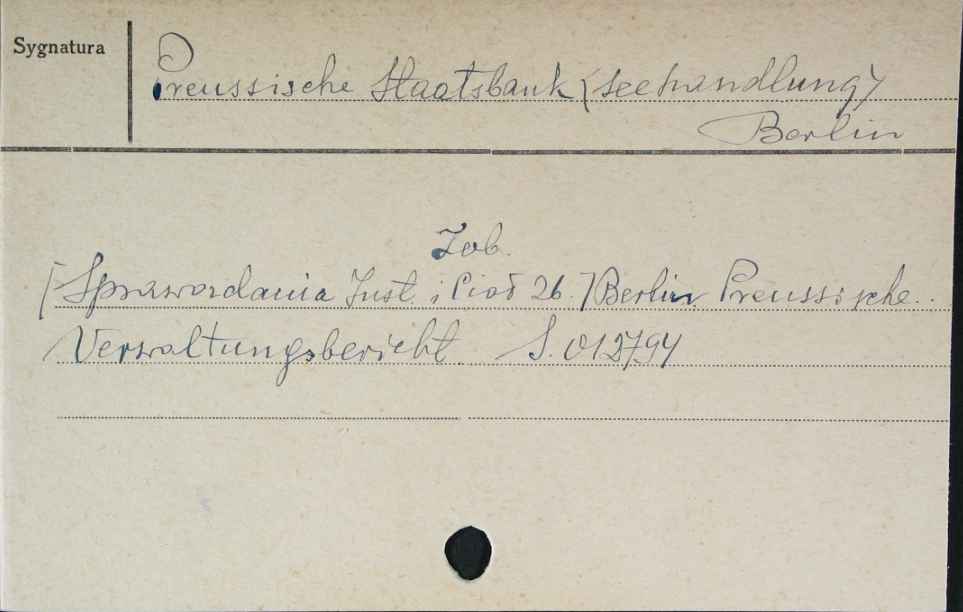 Sygnatura
Preussische Staatsbank (Seehandlung)
Berlin
Zob.
[Sprawozdania Inst. i 26.] Berlin Preussische..
Verwaltungsbericht S. 012794